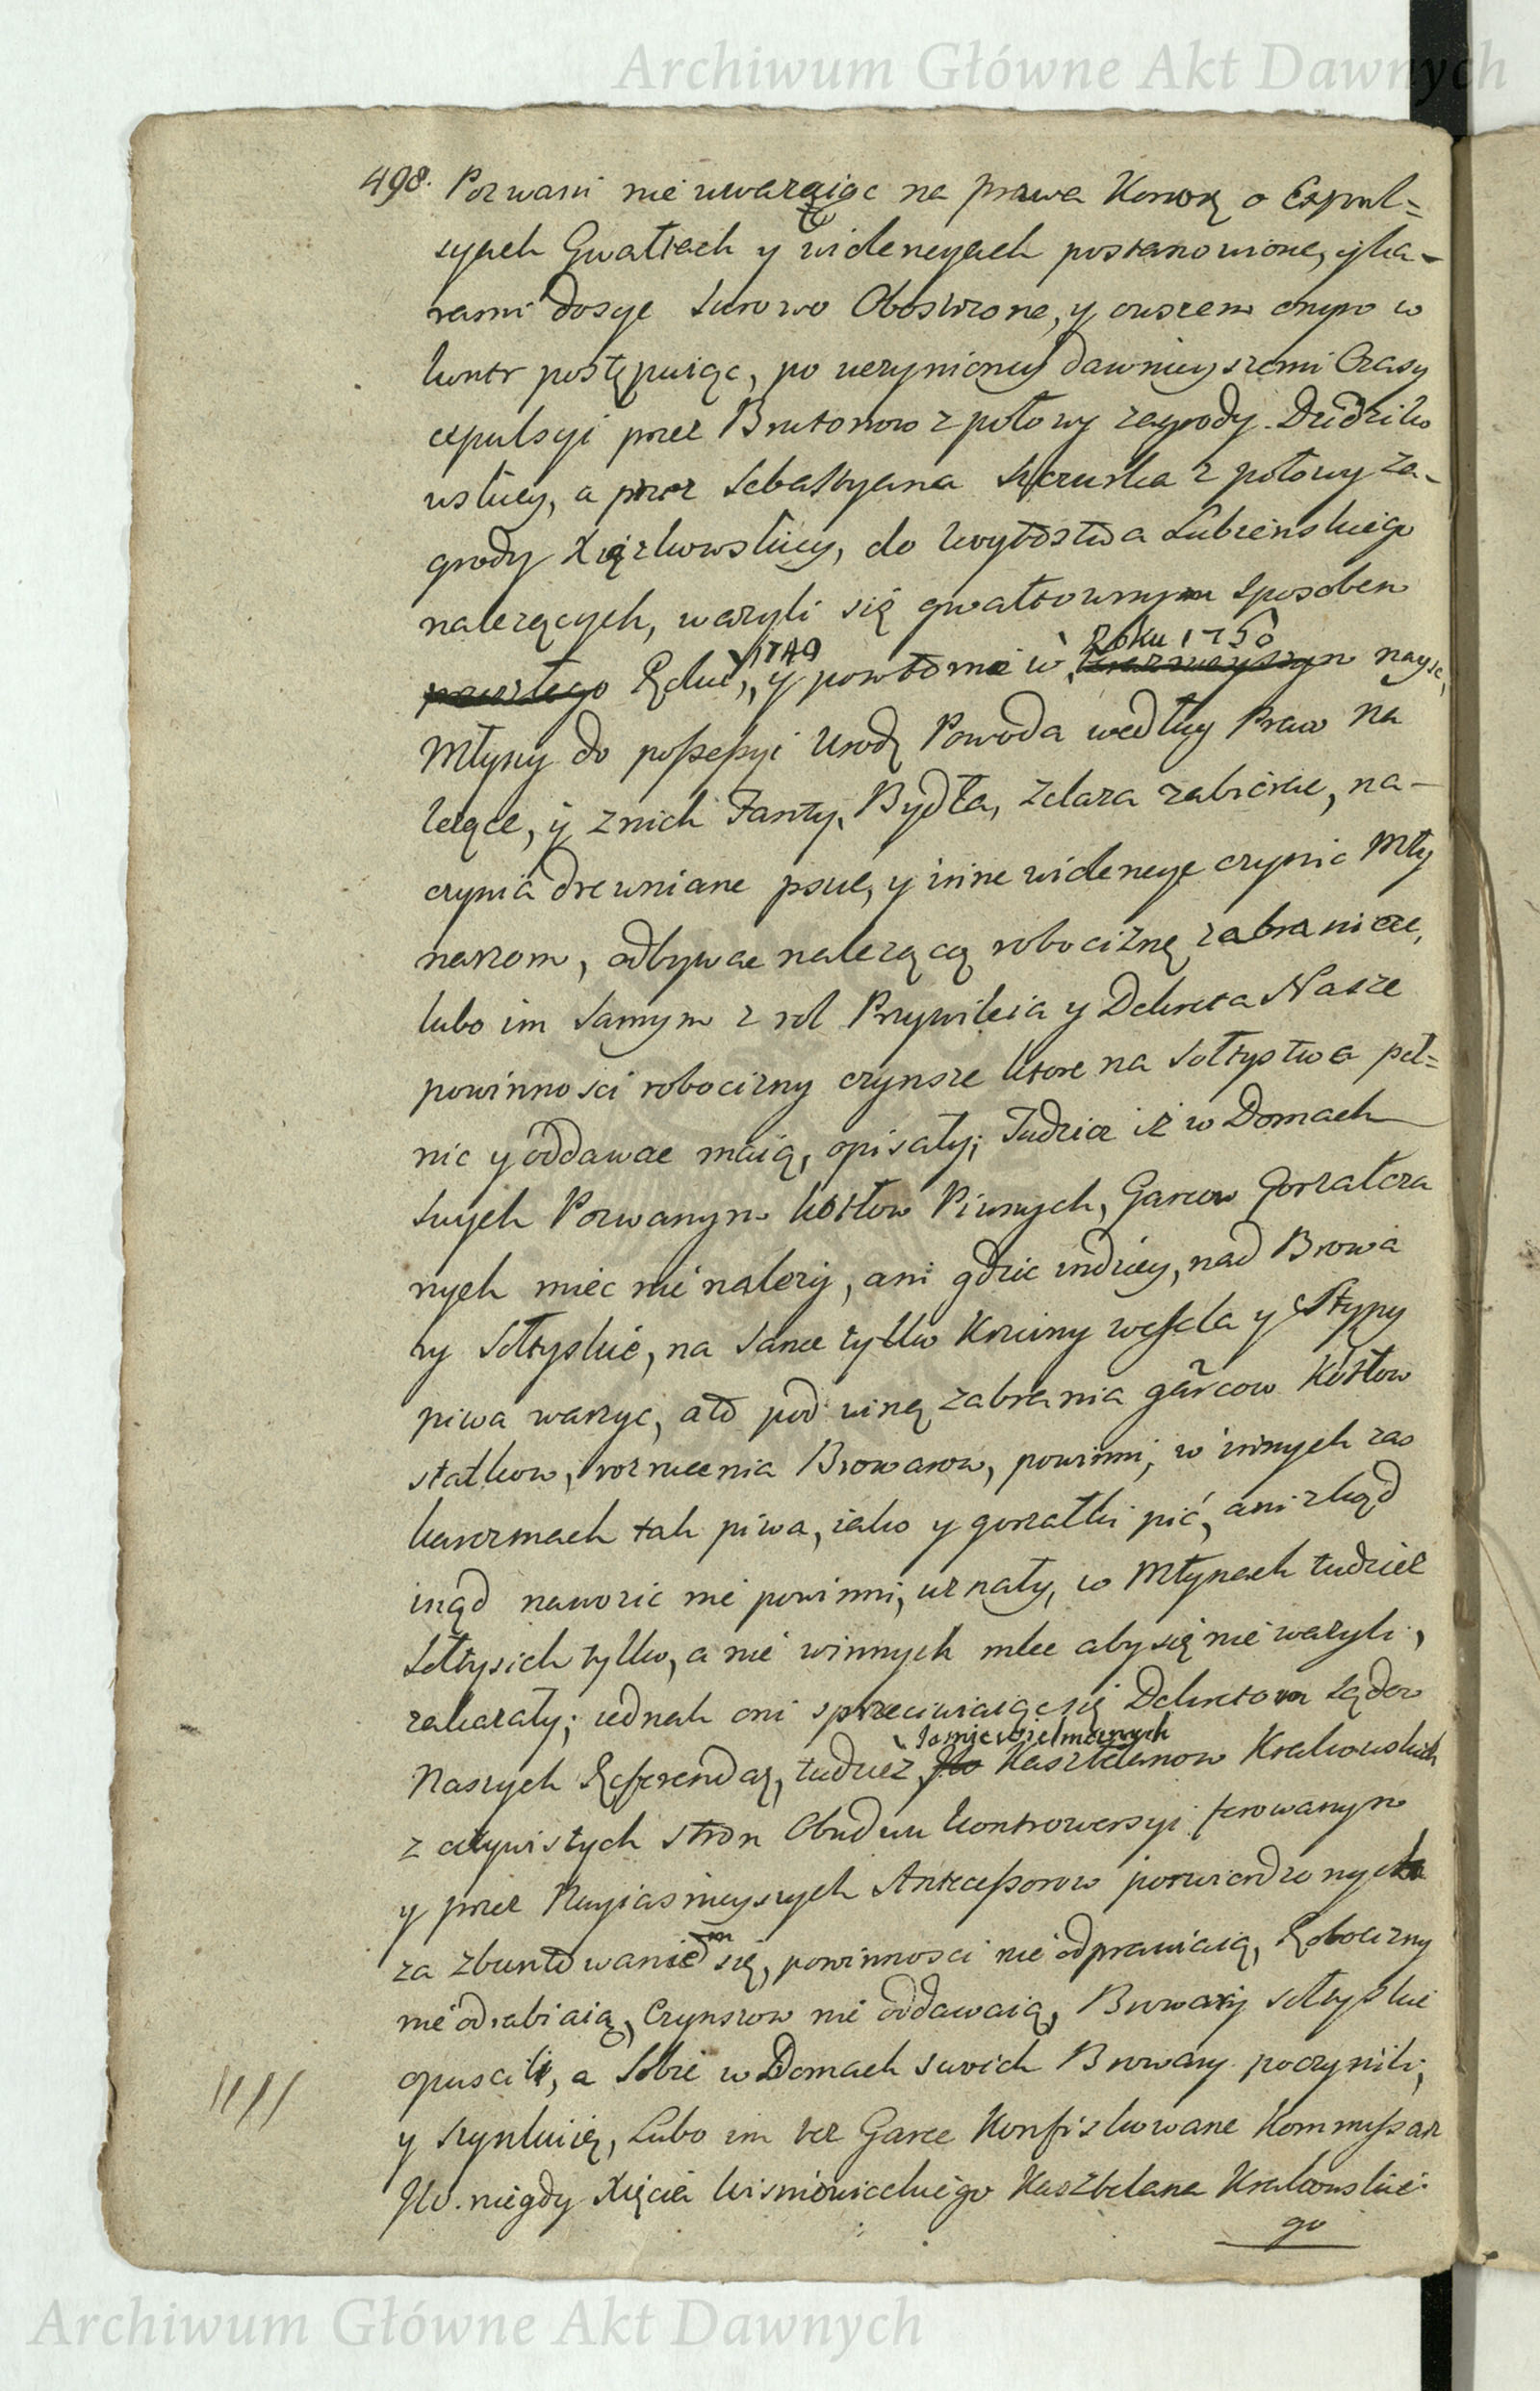 Archiwum Główne Akt Dawnych
498. Pozwani nie uważaiąc na prawa Koron o Expul=
syach Gwałtach y widencyach postanowione, y ka-
rami dosyc surowo Obostrzone, y owszem onym w
kontr postępuiąc, po uczynioney dawnieyszemi Czasy
expulsyi przez Brutonow z połowy zagrody Dzidziko
wskiey, a przez Sebastyana z połowy za-
grody Xiążkowskiey, do Woytostwa Lubzeńskiego
należących, ważyli się gwałtownym sposobem
przeszłego Roku 1749, y powtornie w Roku 1750 nayść
Młyny do possessyi Urodz Powoda według Praw na
lezące, y z nich Fanty, Bydła, żelaza zabierac, na-
czynia drewniane psuc, y inne widencye czynic Mły
narzom, odbywac nalezącą robociznę zabraniac,
lubo im samym z rol Przywileia y Dekreta Nasze
powinnosci robocizny czynsze ktore na Sołtystwa peł=
nic y oddawac maią, opisały; Tudziez iż w Domach
swych Pozwanym kotłow Piwnych, Garcow Gorzałcza
nych miec nie nalezy, ani gdzie indziey, nad Browa
ry Sołtyskie, na same tylko Krzciny wessela y Stypy
piwa warzyc, a to pod winą zabrania garcow Kotłow
statkow, rozrucenia Browarow, powinni, w innych zas
karczmach tak piwa, iako y gorzałki pić, ani zkąd
inąd nawozic nie powinni, uznały, w Młynach tudziez
Sołtysich tylko, a nie w innych mlec aby się nie ważyli,
zakazały; iednak oni sprzeciwiaiąc się Dekretom Sądow
Naszych Referendar, tudziez Jasnie Wielmoznych Kasztelanow Krakowskich
z oczywistych stron Obudwu kontrowersyi ferowanym
y przez Nayiasnieyszych Antecessorow potwierdzonych
za zbuntowaniem się, powinnosci nie odprawiaią, Robocizny
nie odrabiaią, Czynszow nie oddawaią, Browary sołtyskie
opuscili, a Sobie w Domach swoich Browary poczynili,
y szynkuią, Lubo im tez Garce Konfiskowane Kommyssarz
JW. niegdy Xięcia Wisniowieckiego Kasztelana Krakowskie-
go
Archiwum Główne Akt Dawnych